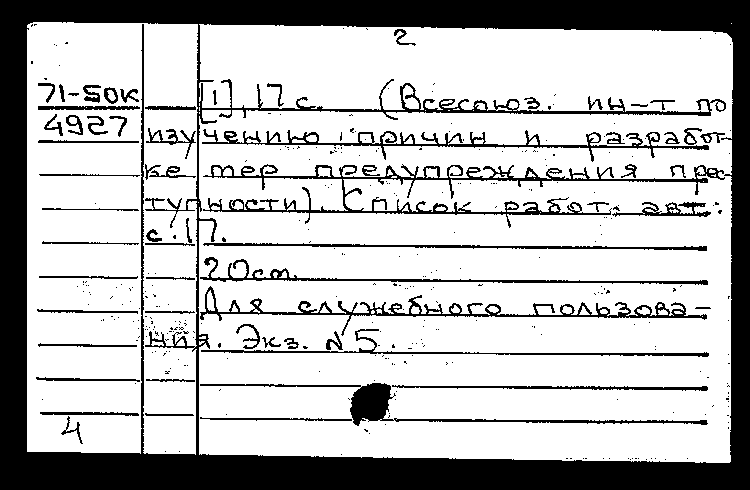 2
71-50к [1], 17 с. (Всесоюз. ин-т по
4927 изучению причин и разработ-
ке мер предупреждения прес-
тупности). Список работ. авт.:
с. 17.
20 см.
Для служебного пользова-
ния. Экз. №5.
4